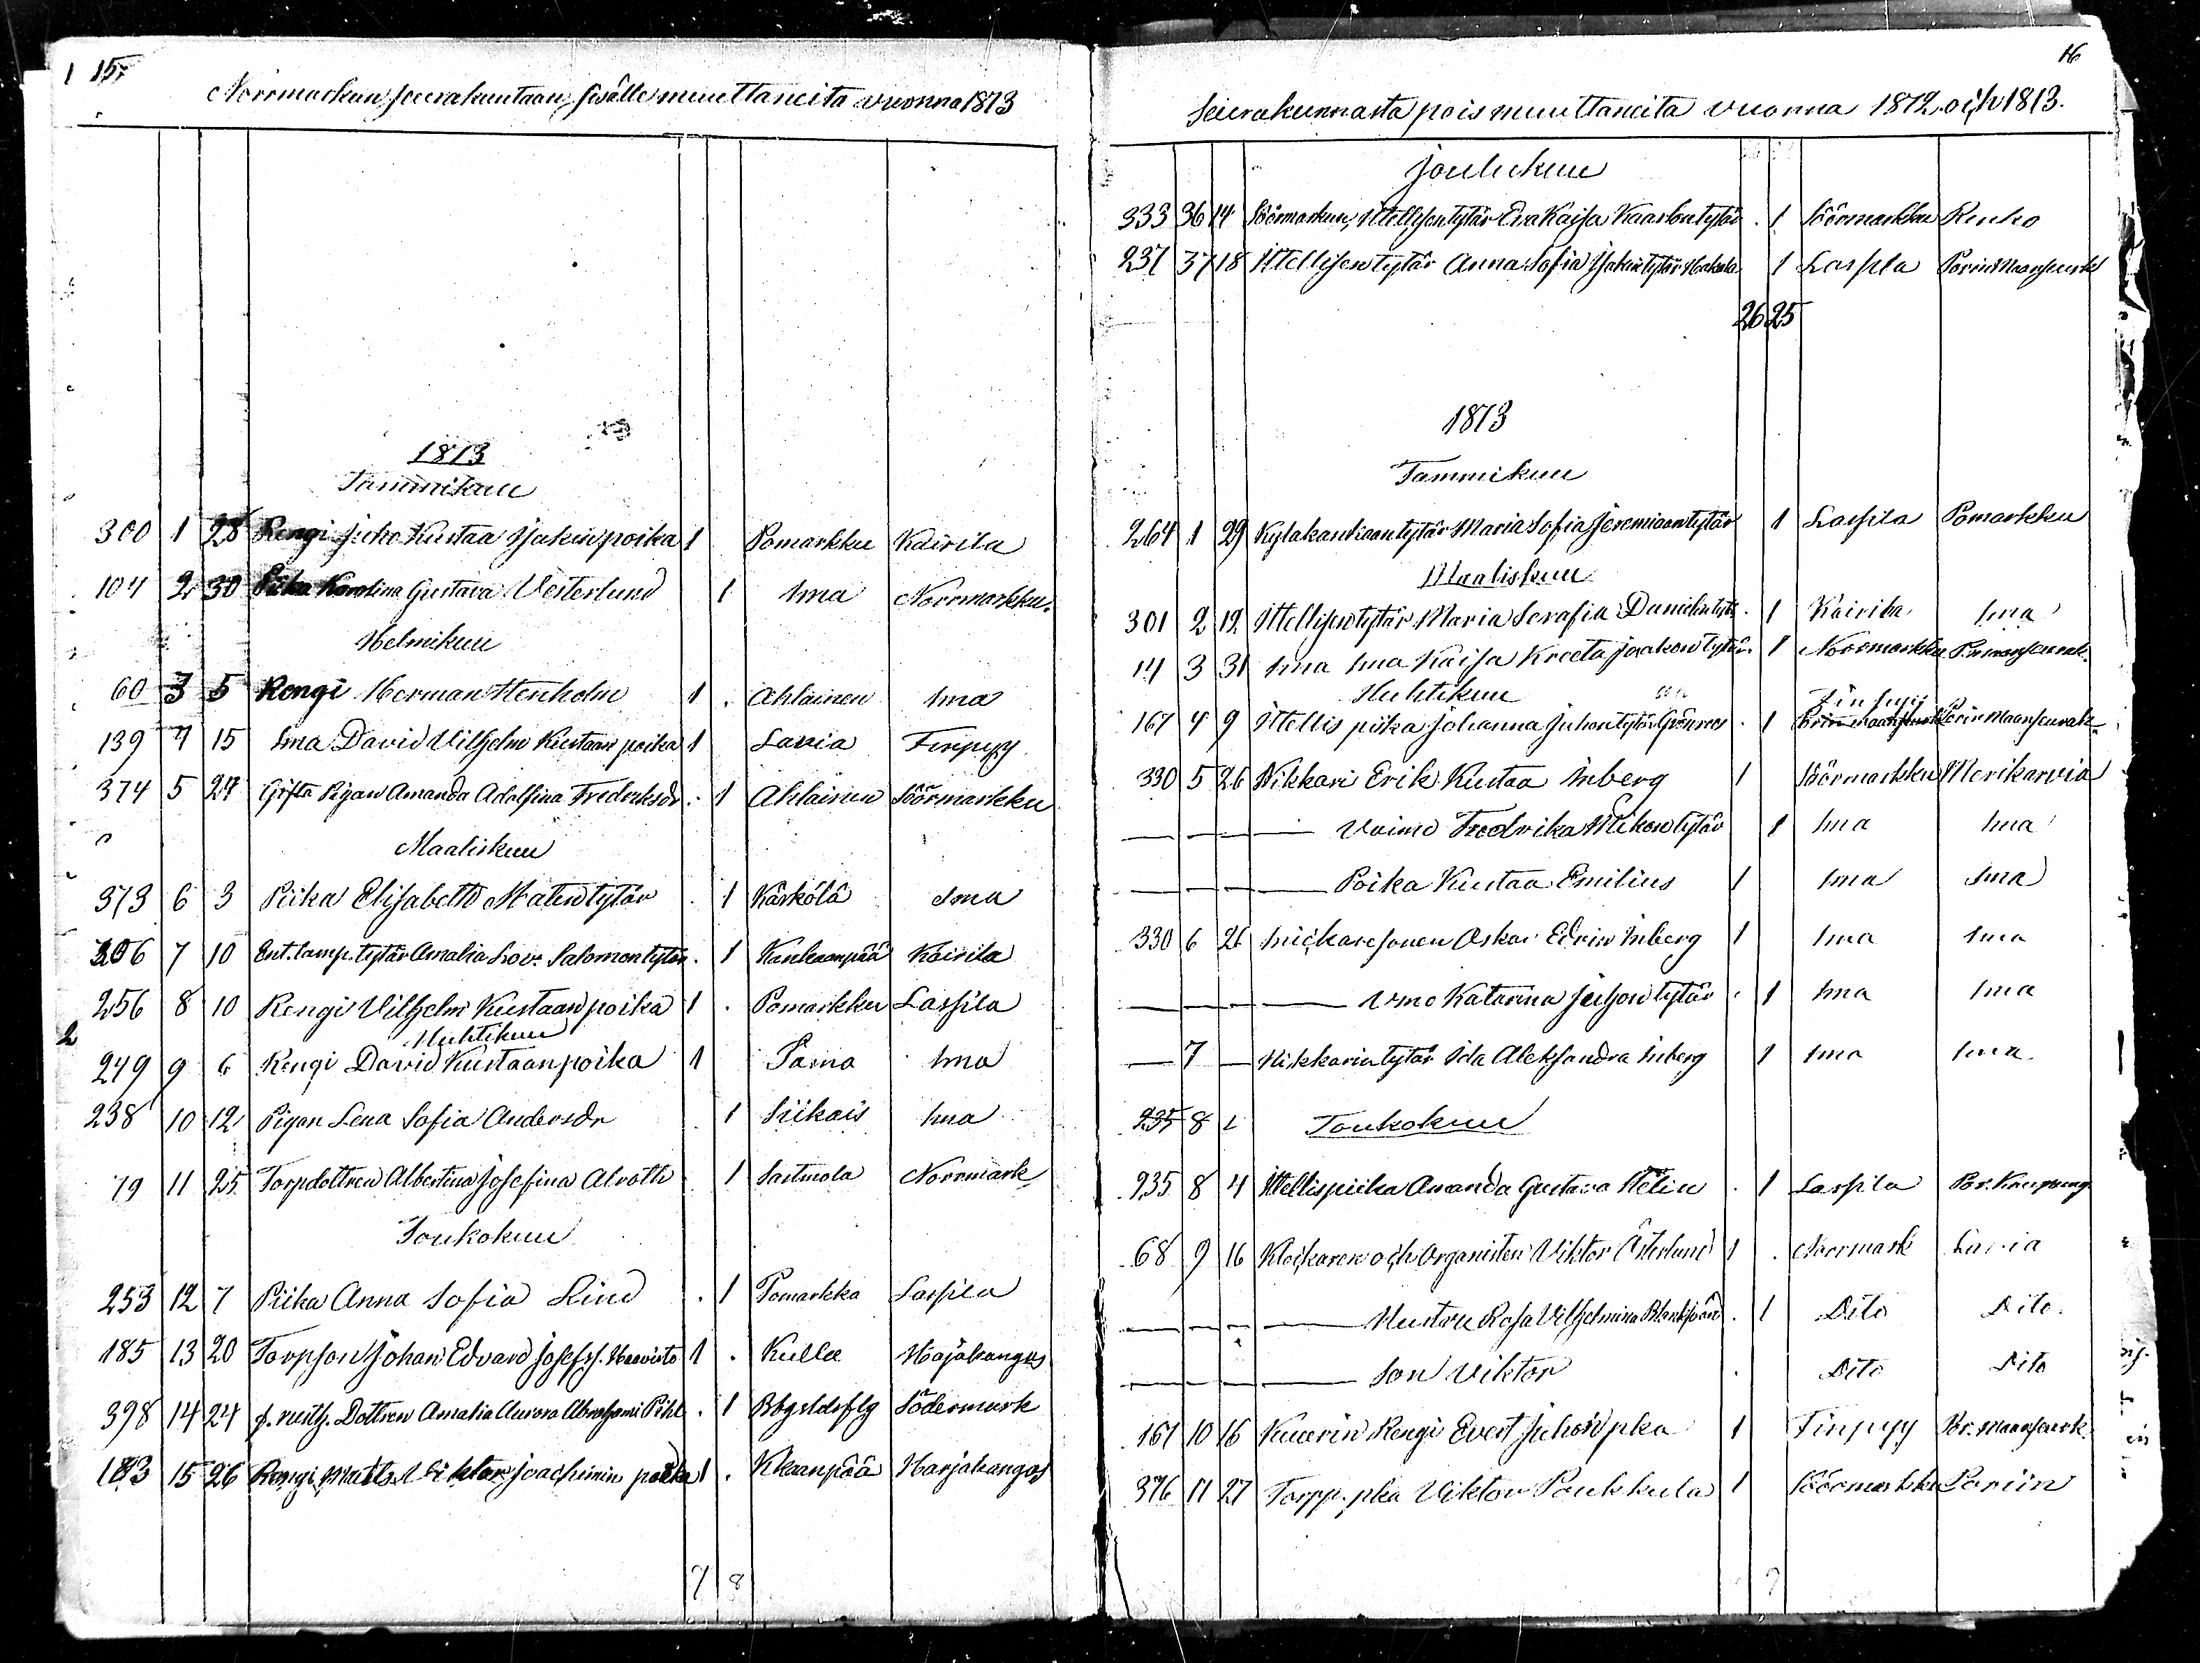 1 15
Norrmarkun seurakuntaan sisälle muuttaneita vuonna 1873
1873
Tammikuu
300 1 28 Rengi Juho Kustaa Isakin poika 1 Pomarkku Kairila
104 2 30 Piika Karolina Gustava Vesterlund 1 sma Norrmarkku
Helmikuu
60 3 5 Rengi Herman Stenholm 1 . Ahlainen sma
139 4 15 sma David Vilhelm Kustaan poika 1 Lavia Finpyy
374 5 24 Gifta Pigan Amanda Adolfina Fredriksdr . 1 Ahlainen Söörmarkku
Maaliskuu
373 6 3 Piika Elisabetth Matintytär . 1 Kärkölä sma
206 7 10 Ent. lamp. tytär Amalia Lov. Salomontytär . 1 Kankaanpää Kairila
256 8 10 Rengi Vilhelm Kustaan poika 1 . Pomarkku Lassila
Huhtikuu
2
249 9 6 Rengi David Kustaanpoika 1 Sama sma
238 10 12 Pigan Lena Sofia Andersdr . 1 Siikais sma
79 11 25 Torpdottren Albertina Josefina Alroth . 1 Sastmola Norrmark
Toukokuu
253 12 7 Piika Anna Sofia Lind . 1 Pomarkku Lassila
185 13 20 Torpson Johan Edvard Josefss. Haavisto 1 . Kulla Harjakangas
398 14 24 f. Dottren Amalia Aurora Abrahami Pihl . 1 Södermark
183 15 26 Rengi Matts Viktor Joachimin poika 1 . Kkaanpää Harjakangas
7 8
16
Seurakunnasta pois muuttaneita vuonna 1872 och 1873.
Joulukuu
333 36 14 Söörmarkun, Itellisentytär Eva Kaisa Kaarlontytär . 1 Söörmarkku Renko
237 37 18 Itellisentytär Anna Sofia Isakintytär Hakala 1 Lassila Porin Maanseurk
26 25
1873
Tammikuu
264 1 29 Kylakankaantytär Maria Sofia Jeremiaantytär 1 Lassila Pomarkku
Maaliskuu
301 2 12 Itellisentytär Maria Serafia Danielintytr . 1 Kairila sma
14 3 31 sma sma Kaisa Kreeta Jaakontytär 1 Norrmarkku Porinmanseurak.
Huhtikuu
Finpyy
167 4 9 Itellis piika Johanna Juhontytär Grönroos . 1 Porin Maanseurk Porin Maanseurak
330 5 26 Nikkari Erik Kustaa Inberg 1 Söörmarkku Merikarvia
Vaimo Fredrika Mikontytär 1 sma sma
Poika Kustaa Emilius 1 sma sma
330 6 26 Snickaresonen Oskar Edvin Inberg 1 sma sma
Vmo Katarina Juhontytär . 1 sma sma
7 Nikkarintytär Ida Aleksandra Inberg 1 sma sma
235 8 Toukokuu
235 8 4 Itellispiika Amanda Gustava Helin . 1 Lassila Por. Kaupung
68 9 16 Klockaren och Organisten Viktor Österlund 1 . Norrmark Lavia
Hustru Rosa Vilhelmina . 1 Dito Dito
Son Viktor . Dito Dito
167 10 16 Kuurin Rengi Evert Juhon pka 1 Finpyy Por. Maanseurk.
376 11 27 Torpp. pka Viktor Poukkula 1 Söörmarkku Poriin
7